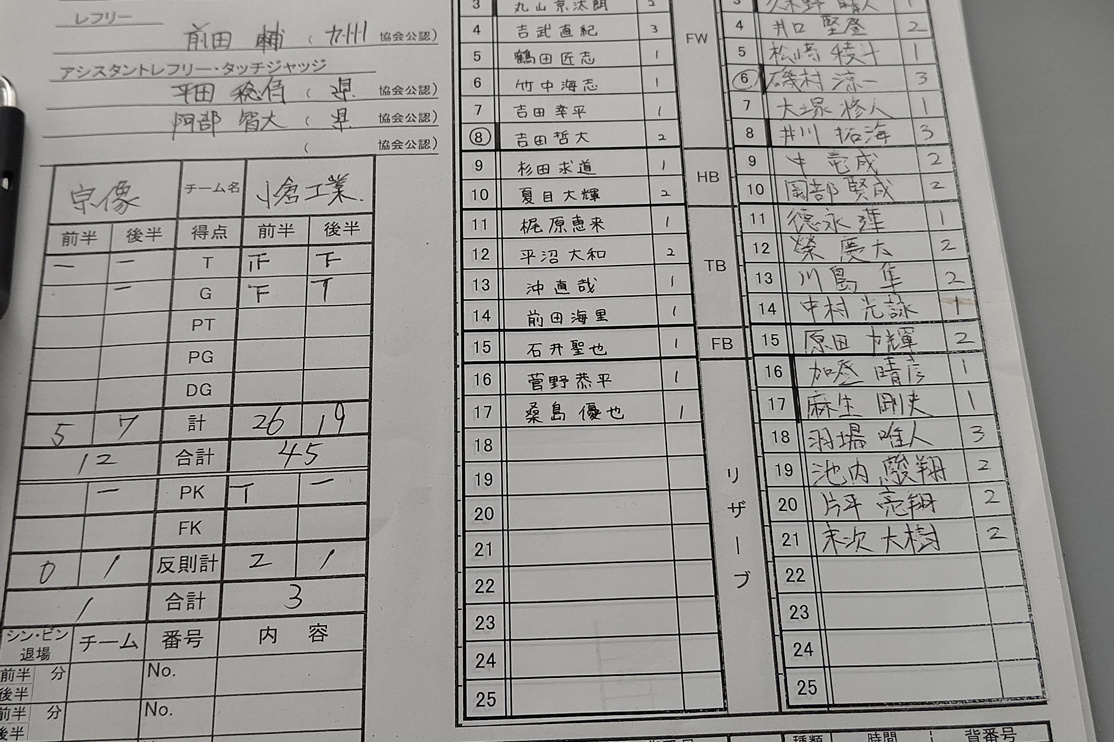 レフリー
前田 輔 ( 九州 協会公認)
アシスタントレフリー・タッチジャッジ
平田 稔侑 ( 県 協会公認)
阿部 智大 ( 県 協会公認)
( 協会公認)
宗像 チーム名 小倉工業
前半 後半 得点 前半 後半
一 一 T 正 下
一 G 下 T
PT
PG
DG
5 7 計 26 19
12 合計 45
一 PK T 一
FK
0 1 反則計 2 1
1 合計 3
シン・ビン 退場 チーム 番号 内 容
前半 分 No.
後半
前半 分 No.
後半
3 丸山京汰朗 2
4 吉武直紀 3
5 鶴田匠志 1
6 竹中海志 1
7 吉田幸平 1
8 吉田哲大 2
9 杉田求道 1
10 夏目大輝 2
11 梶原恵来 1
12 平沼大和 2
13 沖直哉 1
14 前田海里 1
15 石井聖也 1
16 菅野恭平 1
17 桑島優也 1
18
19
20
21
22
23
24
25
FW
HB
TB
FB
リザーブ
3 久木野 晴人 1
4 井口 堅登 2
5 松崎 稜斗 1
6 磯村 涼一 3
7 大塚 修人 1
8 井川 拓海 3
9 中 壱成 2
10 岡部 賢成 2
11 德永 進 1
12 榮 慶太 2
13 川島 隼 2
14 中村 光詠 1
15 原田 輝 2
16 加 晴彦 1
17 麻生 剛史 1
18 羽場 唯人 3
19 池内 駿翔 2
20 片平 亮翔 2
21 末次 大樹 2
22
23
24
25
背番号 種類 時間 背番号